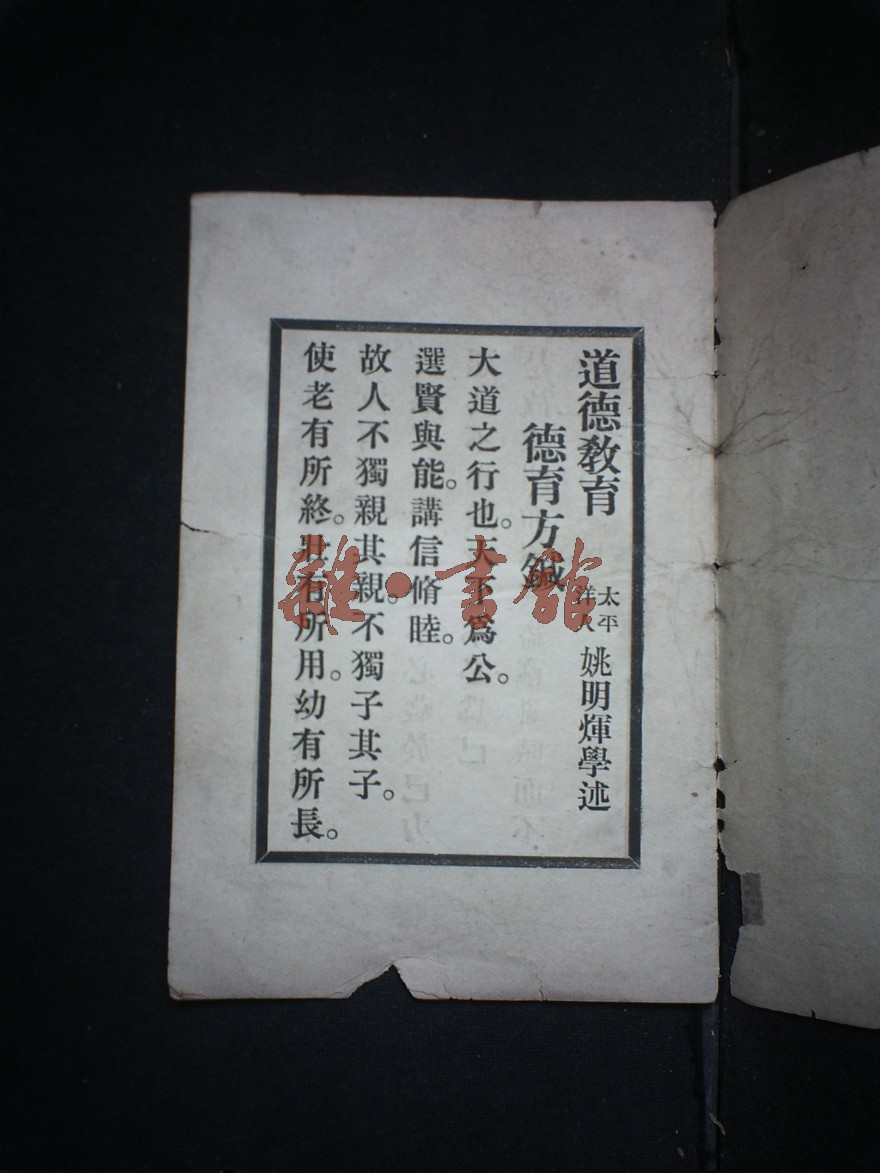 道德教育 太平洋人 姚明煇學述
德育方鍼
大道之行也。天下爲公。
選賢與能。講信脩睦。
故人不獨親其親。不獨子其子。
使老有所終。壯有所用。幼有所長。
雜·書館